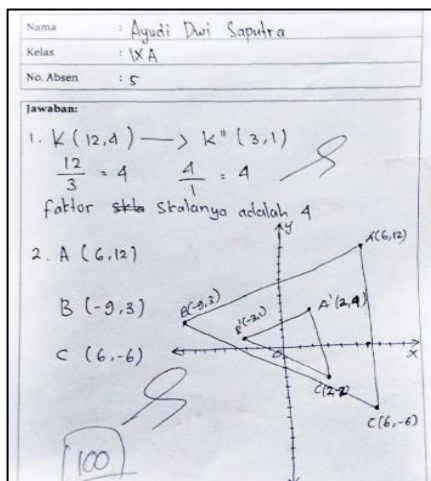 Nama : Ayudi Dwi Saputra
Kelas : IXA
No. Absen : 5
Jawaban:
1. K (12,4) —> K" (3,1)
12/3 = 4 4/1 = 4
faktor skalanya adalah 4
2. A (6,12)
B (-9,3)
C (6,-6)
y
A(6,12)
B(-9,3)
A'(2,4)
B'(-3,1)
0
x
C(2,-2)
C(6,-6)
100